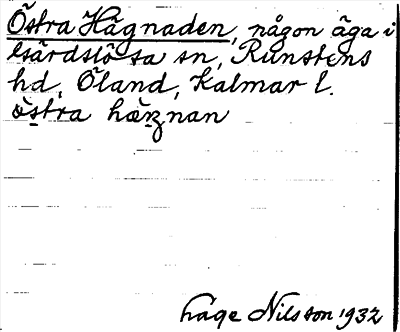 Östra Hägnaden, någon äga i
Gärdslösa sn, Runstens
hd, Öland, Kalmar l.
östra hæŋnan
Lage Nilsson 1932